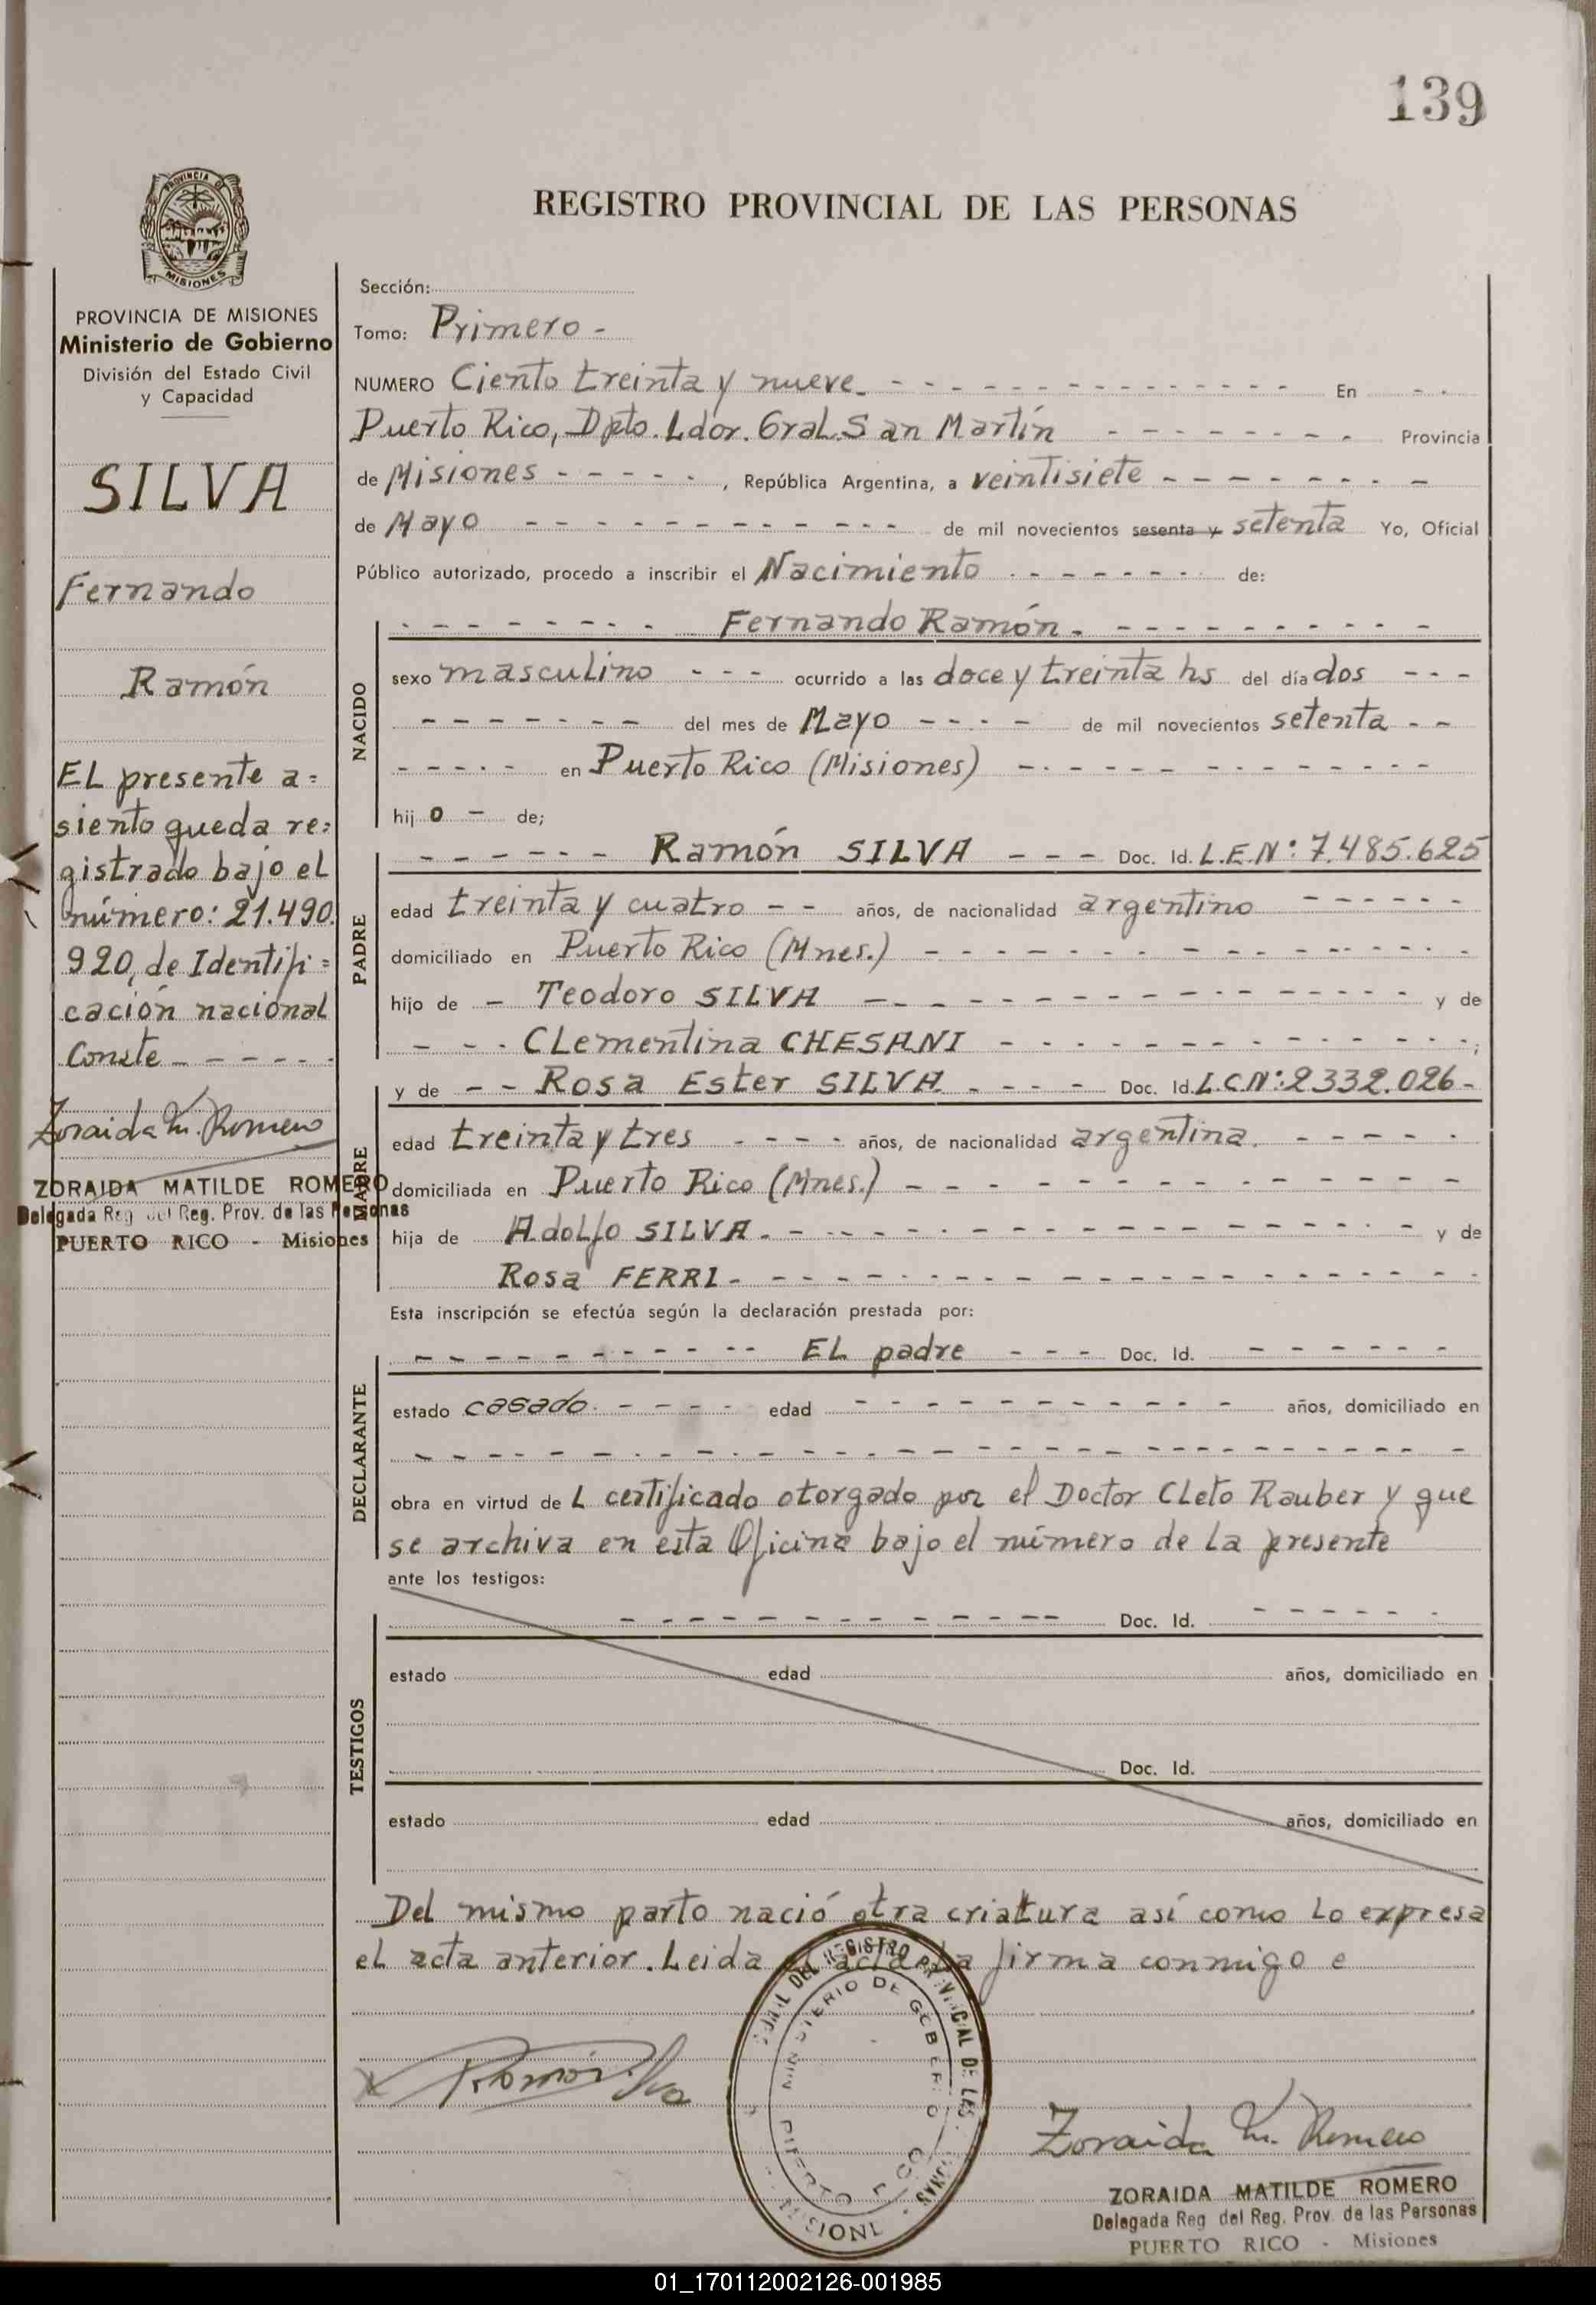 139
REGISTRO PROVINCIAL DE LAS PERSONAS
PROVINCIA DE
MISIONES
PROVINCIA DE MISIONES
Ministerio de Gobierno
División del Estado Civil
y Capacidad
SILVA
Fernando
Ramón
EL presente a=
siento queda re=
gistrado bajo el
número: 21.490.
920, de Identifi=
cación nacional
Conste
Zoraida M. Romero
ZORAIDA MATILDE ROMERO
Delegada Reg del Reg. Prov. de las Personas
PUERTO RICO - Misiones
Sección:
Tomo: Primero -
NUMERO Ciento treinta y nueve. En
Puerto Rico, Dpto. Ldor. Gral. San Martín Provincia
de Misiones, República Argentina, a veintisiete
de Mayo de mil novecientos sesenta y setenta Yo, Oficial
Público autorizado, procedo a inscribir el Nacimiento de:
NACIDO
Fernando Ramón.
sexo masculino ocurrido a las doce y treinta hs del día dos
del mes de Mayo de mil novecientos setenta
en Puerto Rico (Misiones)
hijo de;
PADRE
Ramón SILVA Doc. Id. L.E.Nº: 7.485.625
edad treinta y cuatro años, de nacionalidad argentino
domiciliado en Puerto Rico (Mnes.)
hijo de Teodoro SILVA y de
CLementina CHESANI ;
MADRE
y de Rosa Ester SILVA Doc. Id. L.C.Nº: 2332.026-
edad treinta y tres años, de nacionalidad argentina.
domiciliada en Puerto Rico (Mnes.)
hija de AdoLfo SILVA. y de
Rosa FERRI-
Esta inscripción se efectúa según la declaración prestada por:
DECLARANTE
EL padre Doc. Id.
estado casado. edad años, domiciliado en
obra en virtud de L certificado otorgado por el Doctor CLeto Rauber y que
se archiva en esta Oficina bajo el número de La presente
ante los testigos:
TESTIGOS
Doc. Id.
estado edad años, domiciliado en
Doc. Id.
estado edad años, domiciliado en
Del mismo parto nació otra criatura así como Lo expresa
eL acta anterior. Leida el acta La firma conmigo e
DEL REGISTRO PROVINCIAL DE LAS
MINISTERIO DE GOBIERNO
PUERTO RICO
Ramón Silva
Zoraida M. Romero
ZORAIDA MATILDE ROMERO
Delegada Reg del Reg. Prov. de las Personas
PUERTO RICO - Misiones
01_170112002126-001985